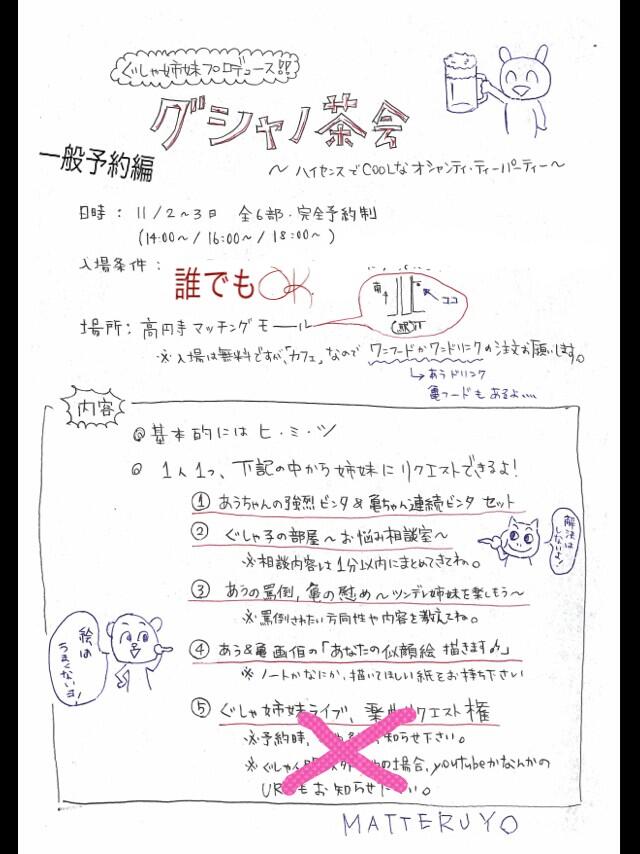 ぐしゃ姉妹プロデュース!!
グシャノ茶会
一般予約編
～ハイセンスでCOOLなオシャンティ・ティーパーティー～
日時： 11/2～3日 全6部・完全予約制
(14:00～/16:00～/18:00～)
入場条件：
誰でもOK
南
ココ
(駅)
場所：高円寺マッチングモール
※入場は無料ですが、「カフェ」なので ワンフードかワンドリンクの注文お願いします。
↳あうドリンク
亀フードもあるよ....
内容
◎基本的にはヒ・ミ・ツ
◎ 1人1つ、下記の中から姉妹にリクエストできるよ!
① あうちゃんの強烈ビンタ&亀ちゃん連続ビンタ セット
② ぐしゃ子の部屋～お悩み相談室～
※相談内容は1分以内にまとめてきてね。
解決はしないよ!
③ あうの罵倒，亀の慰め～ツンデレ姉妹を楽しもう～
※罵倒されたい方向性や内容を教えてね。
④ あう&亀画伯の「あなたの似顔絵 描きます♪」
※ノートかなにか、描いてほしい紙をお持ち下さい
絵はうまくないヨ!
⑤ ぐしゃ姉妹ライブ、楽曲リクエスト権
※予約時、お知らせ下さい。
※ぐしゃ の場合，youtubeかなんかの
URLもお知らせ下さい。
MATTERUYO